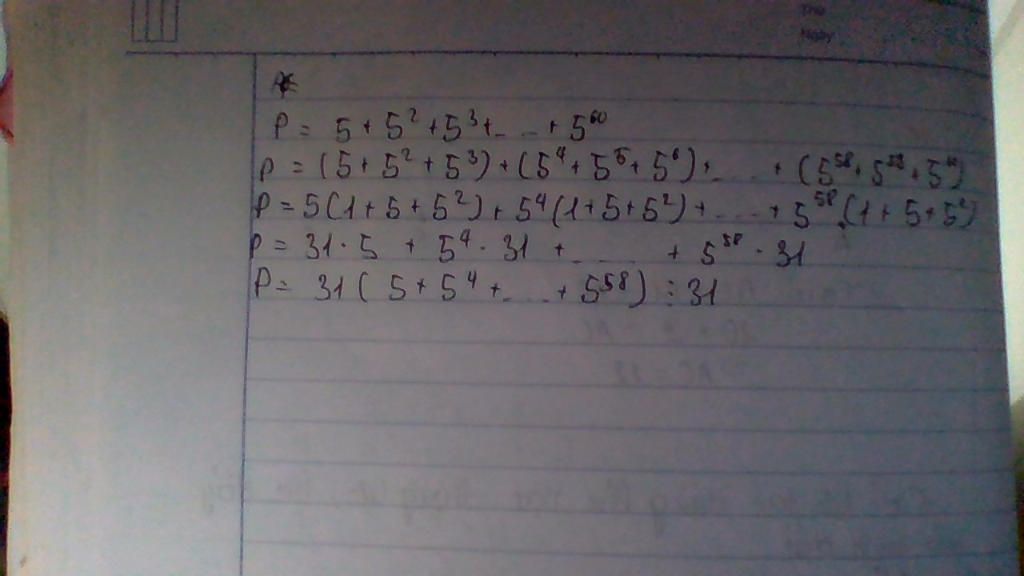 Thứ
Ngày
P = 5 + 5² + 5³ + ... + 5⁶⁰
P = (5 + 5² + 5³) + (5⁴ + 5⁵ + 5⁶) + ... + (5⁵⁸ + 5⁵⁹ + 5⁶⁰)
P = 5(1 + 5 + 5²) + 5⁴(1 + 5 + 5²) + ... + 5⁵⁸.(1 + 5 + 5²)
P = 31 · 5 + 5⁴ · 31 + ... + 5⁵⁸ · 31
P = 31( 5 + 5⁴ + ... + 5⁵⁸) ⋮ 31